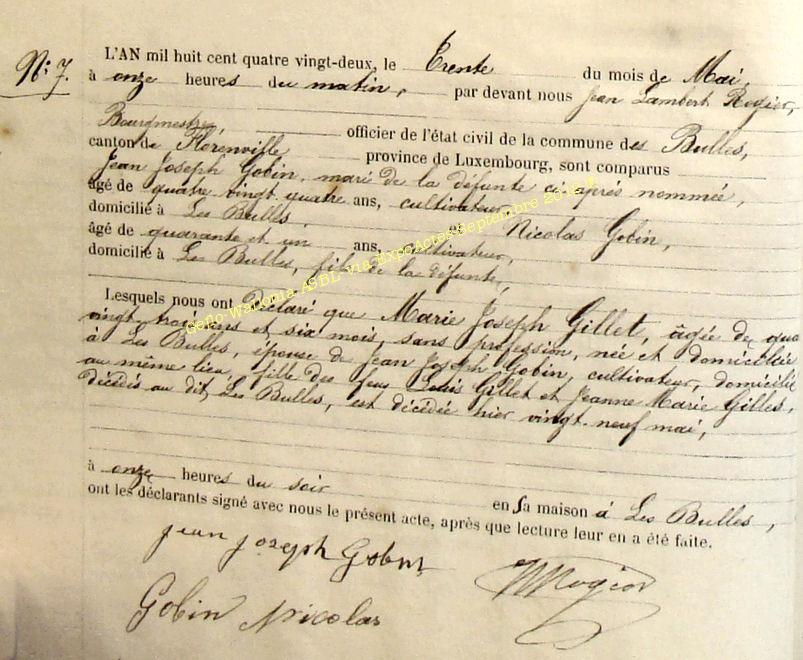 N° 7.
L'AN mil huit cent quatre vingt-deux, le Trente du mois de Mai,
à onze heures du matin, par devant nous Jean Lambert Rogier,
Bourgmestre officier de l'état civil de la commune des Bulles,
canton de Florenville province de Luxembourg, sont comparus
Jean Joseph Gobin, mari de la défunte ci-après nommée,
âgé de quatre vingt quatre ans, cultivateur,
domicilié à Les Bulles, Nicolas Gobin,
âgé de quarante et un ans, cultivateur,
domicilié à Les Bulles, fils de la défunte,
Lesquels nous ont déclaré que Marie Joseph Gillet, âgée de
vingt trois ans et six mois, sans profession, née et domiciliée
à Les Bulles, épouse de Jean Joseph Gobin, cultivateur, domicilié
au même lieu, fille des feus Louis Gillet et Jeanne Marie Gilles,
décédés au dit Les Bulles, est décédée hier vingt-neuf mai,
à onze heures du soir en sa maison à Les Bulles,
ont les déclarants signé avec nous le présent acte, après que lecture leur en a été faite.
Jean Joseph Gobin
Rogier
Gobin Nicolas
Geno-Wallonia ASBL via ExpoActes septembre